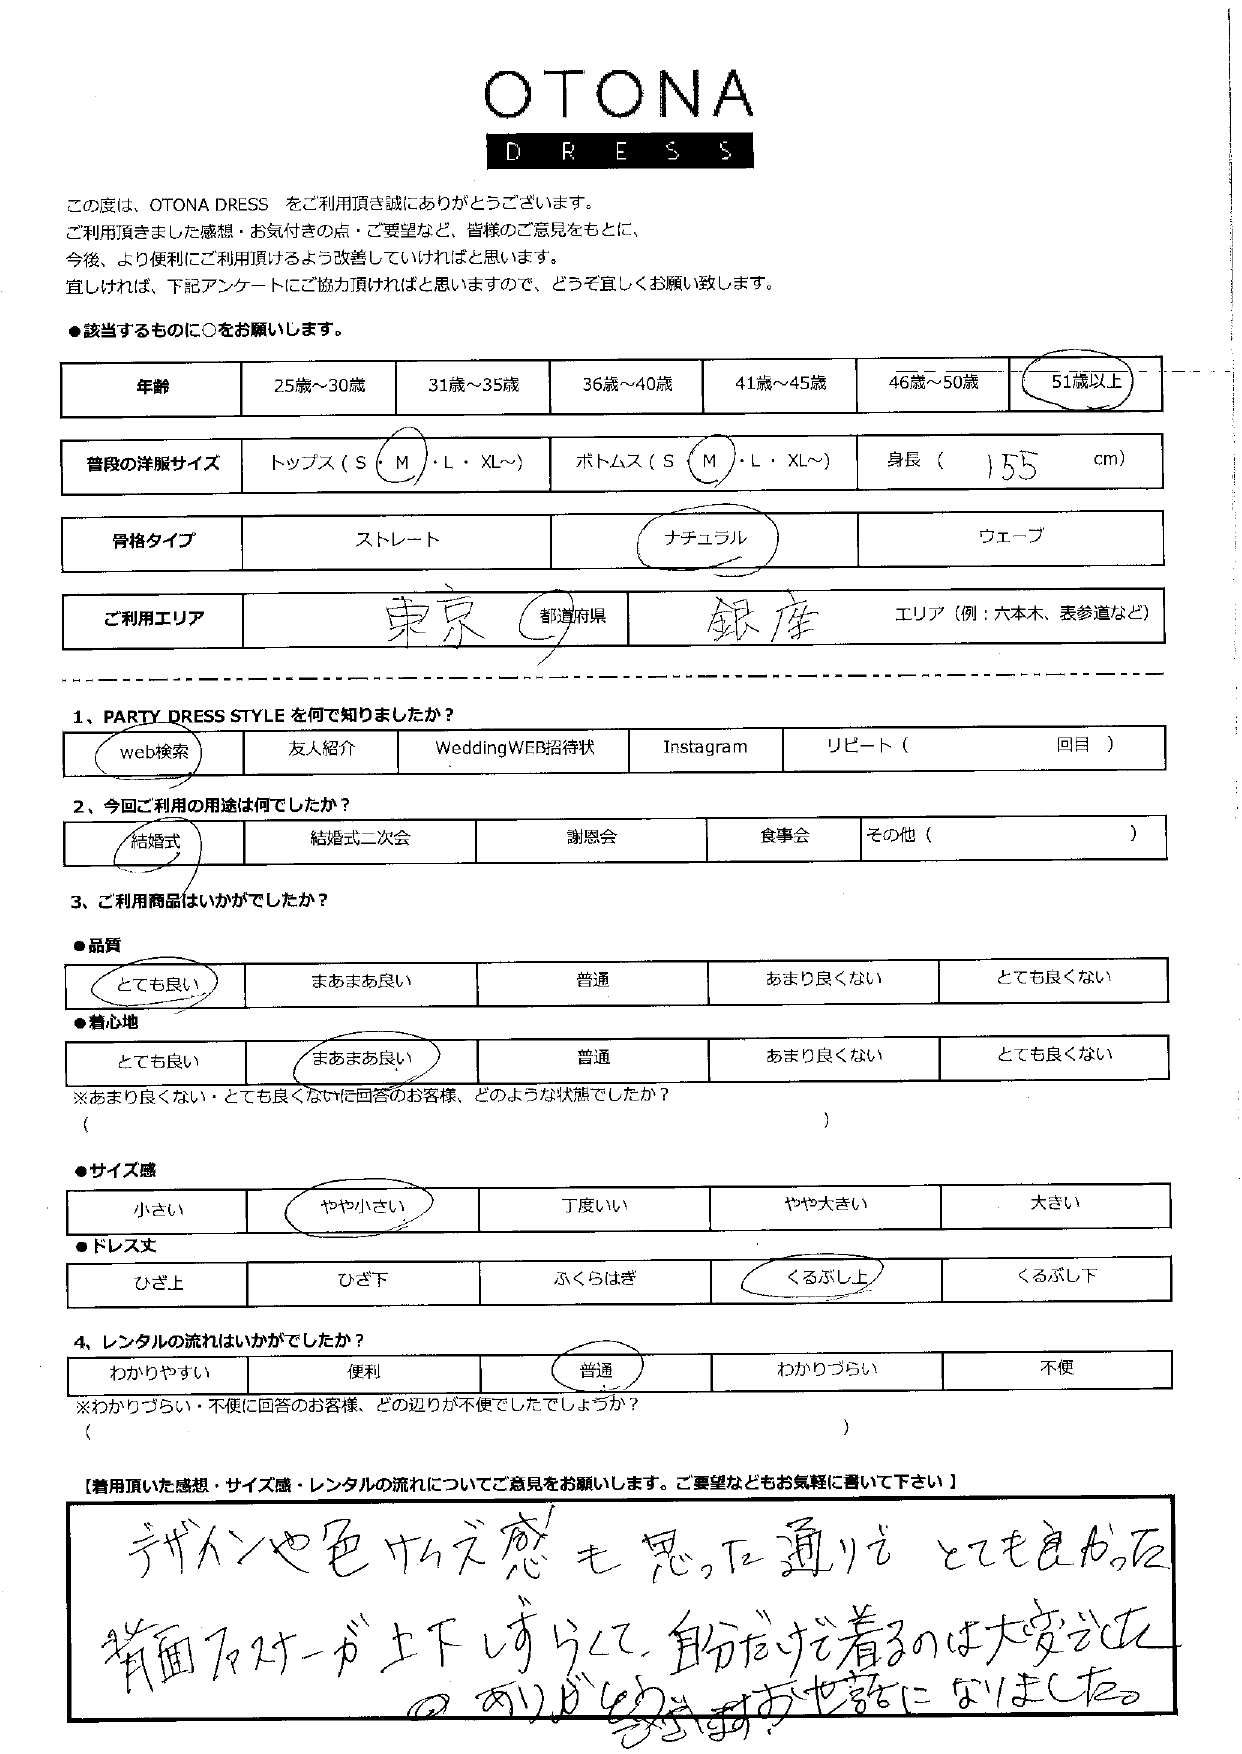 OTONA
DRESS
この度は、OTONA DRESS をご利用頂き誠にありがとうございます。
ご利用頂きました感想・お気付きの点・ご要望など、皆様のご意見をもとに、
今後、より便利にご利用頂けるよう改善していければと思います。
宜しければ、下記アンケートにご協力頂ければと思いますので、どうぞ宜しくお願い致します。
●該当するものに○をお願いします。
年齢 25歳～30歳 31歳～35歳 36歳～40歳 41歳～45歳 46歳～50歳 51歳以上
普段の洋服サイズ トップス（ S ・ M ・ L ・ XL～） ボトムス（ S ・ M ・ L ・ XL～） 身長（ 155 cm）
骨格タイプ ストレート ナチュラル ウェーブ
ご利用エリア 東京 都道府県 銀座 エリア（例：六本木、表参道など）
1、PARTY DRESS STYLE を何で知りましたか？
web検索 友人紹介 WeddingWEB招待状 Instagram リピート（ 回目 ）
2、今回ご利用の用途は何でしたか？
結婚式 結婚式二次会 謝恩会 食事会 その他（ ）
3、ご利用商品はいかがでしたか？
●品質
とても良い まあまあ良い 普通 あまり良くない とても良くない
●着心地
とても良い まあまあ良い 普通 あまり良くない とても良くない
※あまり良くない・とても良くないに回答のお客様、どのような状態でしたか？
（ ）
●サイズ感
小さい やや小さい 丁度いい やや大きい 大きい
●ドレス丈
ひざ上 ひざ下 ふくらはぎ くるぶし上 くるぶし下
4、レンタルの流れはいかがでしたか？
わかりやすい 便利 普通 わかりづらい 不便
※わかりづらい・不便に回答のお客様、どの辺りが不便でしたでしょうか？
（ ）
【着用頂いた感想・サイズ感・レンタルの流れについてご意見をお願いします。ご要望などもお気軽に書いて下さい 】
デザインや色サイズ感も思った通りで とても良かった
背面ファスナーが上下しずらくて、自分だけで着るのは大変でした
ありがとうございます。お世話になりました。